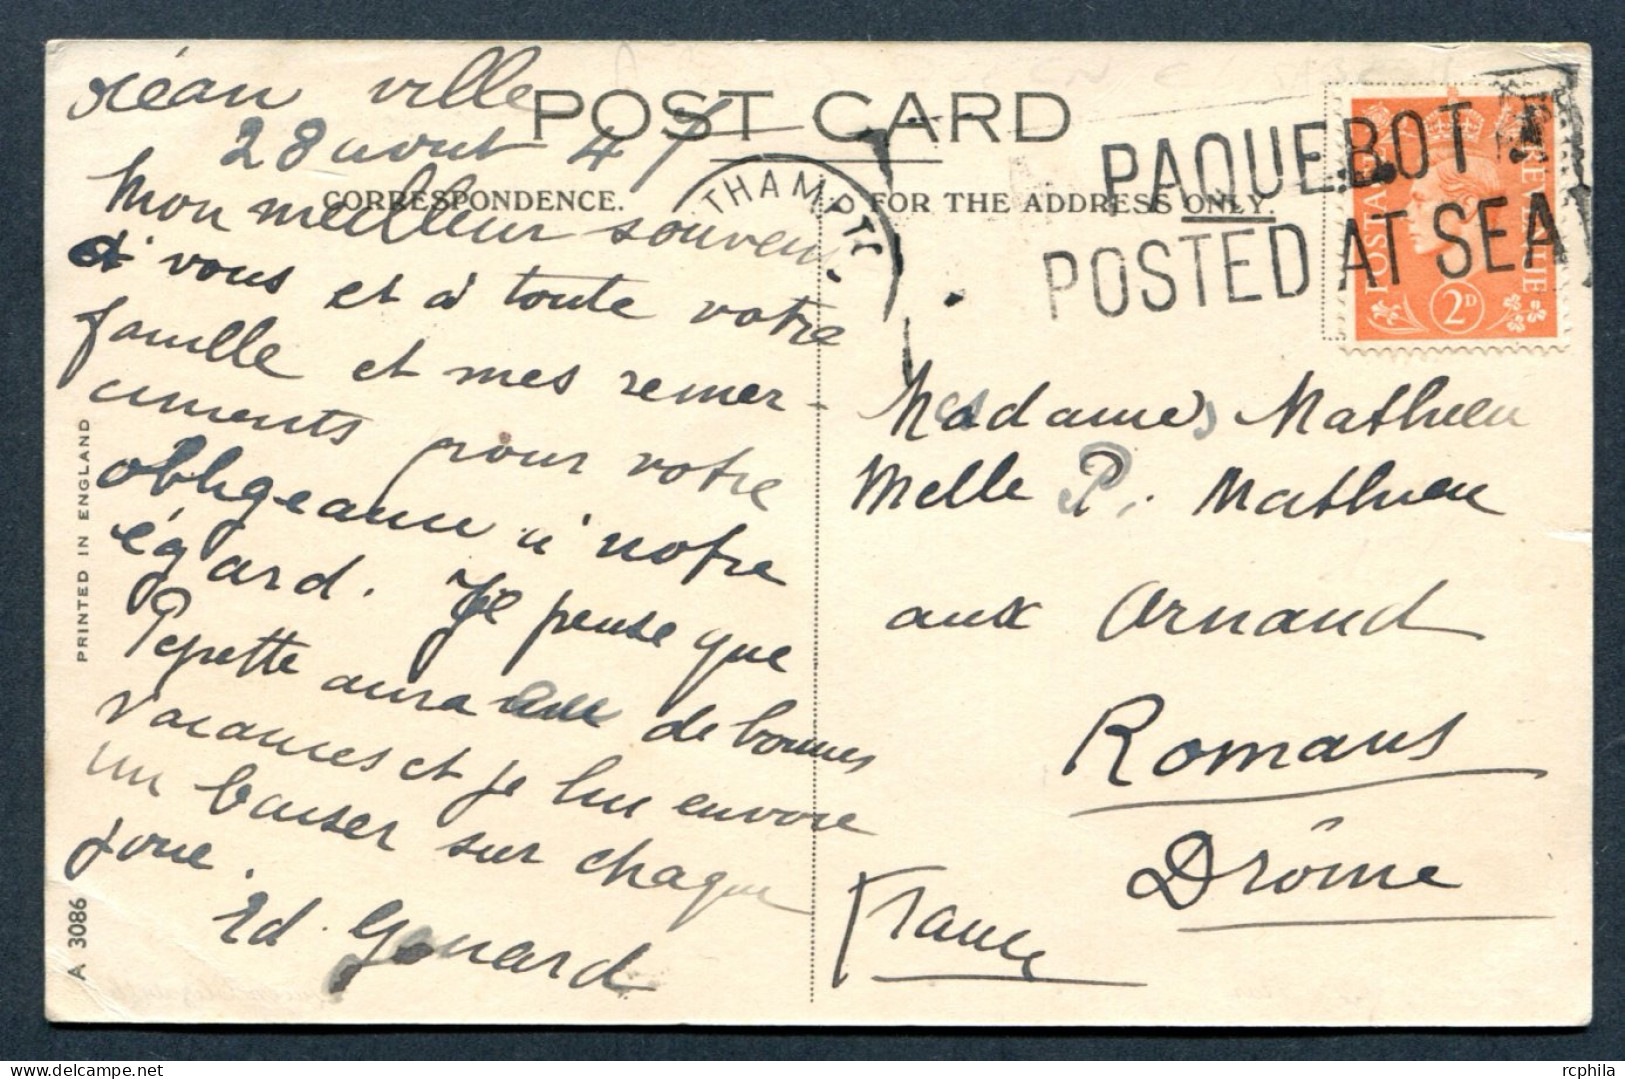 océan ville
28 aout 47
POST CARD
CORRESPONDENCE.
FOR THE ADDRESS ONLY.
THAMPTO
PAQUEBOT
POSTED AT SEA
POSTAGE
REVENUE
2D
Mon meilleur souvenir
à vous et à toute votre
famille et mes remer-
ciements pour votre
obligeance à notre
égard. Je pense que
Pepette aura de bonnes
vacances et je lui envoie
un baiser sur chaque
joue.
Ed. Genard
Mesdames Mathieu
Melle P. Mathieu
aux Arnaud
Romans
Drôme
France
PRINTED IN ENGLAND
A 3086
rcphila